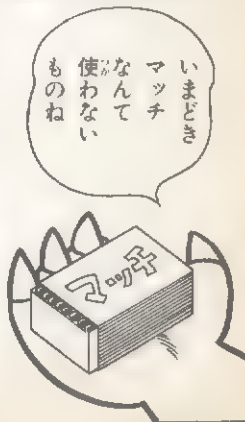 いまどき
マッチ
なんて
使わない
ものね
マッチ